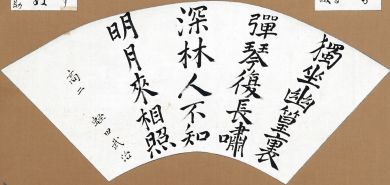 獨坐幽篁裏
彈琴復長嘯
深林人不知
明月來相照
高二
田武治